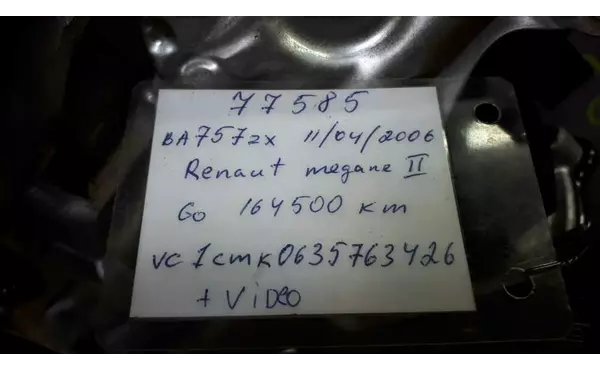 77585
BA757zx 11/04/2006
Renaut megane II
Go 164500 km
VC1cmk0635763426
+ ViDeo